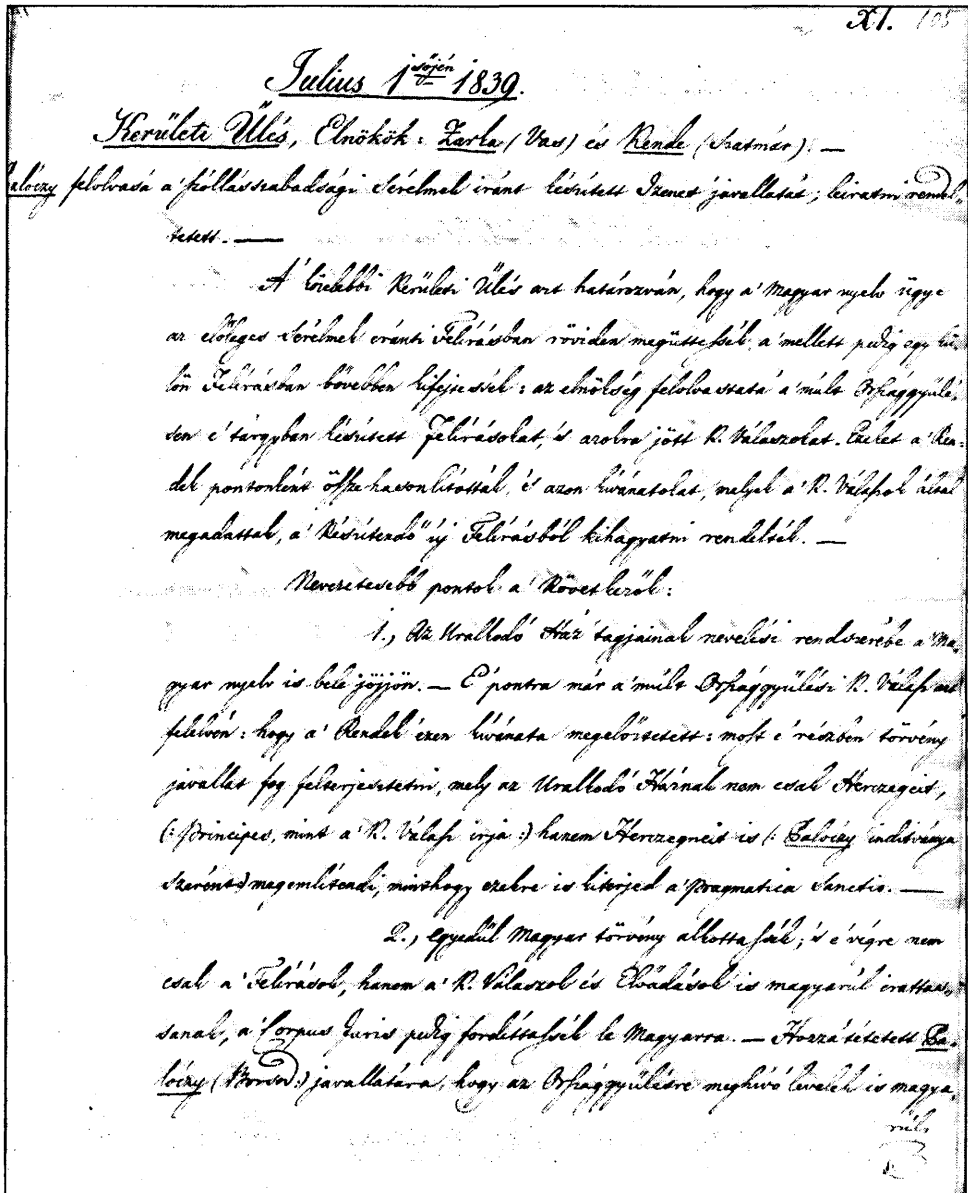 XI. 105
Julius 1sőjén 1839.
Kerületi Ülés, Elnökök: Zarka (Vas) és Kende (Szatmár). —
Palóczy felolvasá a' szóllásszabadsági sérelmek iránt készített Izenet javallatát; leiratni rendel-
tetett. —
A' közelebbi Kerületi Ülés azt határozván, hogy a' Magyar nyelv ügye
az előleges sérelmek eránti Felírásban röviden megüttessék, a' mellett pedig egy kü-
lön Felírásban bővebben kifejtessék: az elnökség felolvastatá a' múlt Országgyűlé-
sen é tárgyban készített Felírásokat, és azokra jött K. Válaszokat. Ezeket a' Ren-
dek pontonként össze hasonlították, és azon kívánatokat, melyek a' K. Válaszok által
megadattak, a' készítendő új Felírásból kihagyatni rendelték. —
Nevezetesebb pontok a' következők:
1., Az Uralkodó Ház' tagjainak nevelési rendszerébe a' Ma-
gyar nyelv is belé jöjjön. — E' pontra már a' múlt Országgyűlési K. Válasz azt
felelvén: hogy a' Rendek ezen kívánata megelőztetett: most é részben törvény
javallat fog felterjesztetni, mely az Uralkodó Háznak nem csak Herczegeit,
(: Principes, mint a' K. Válasz irja :) hanem Herczegneit is (: Palóczy indítványa
szerént :) magemlítendi, minthogy ezekre is kiterjed a' pragmatica Sanctio. —
2., egyedül Magyar törvény alkottassék; 's é végre nem
csak a' Felírások, hanem a' K. Válaszok és Előadások is magyarúl irattas-
sanak, a' Corpus Juris pedig fordíttassék le Magyarra. — Hozzá tétetett Pa-
lóczy (Borsod:) javallatára, hogy az Országgyűlésre meghívó levelek is magya-
rúl